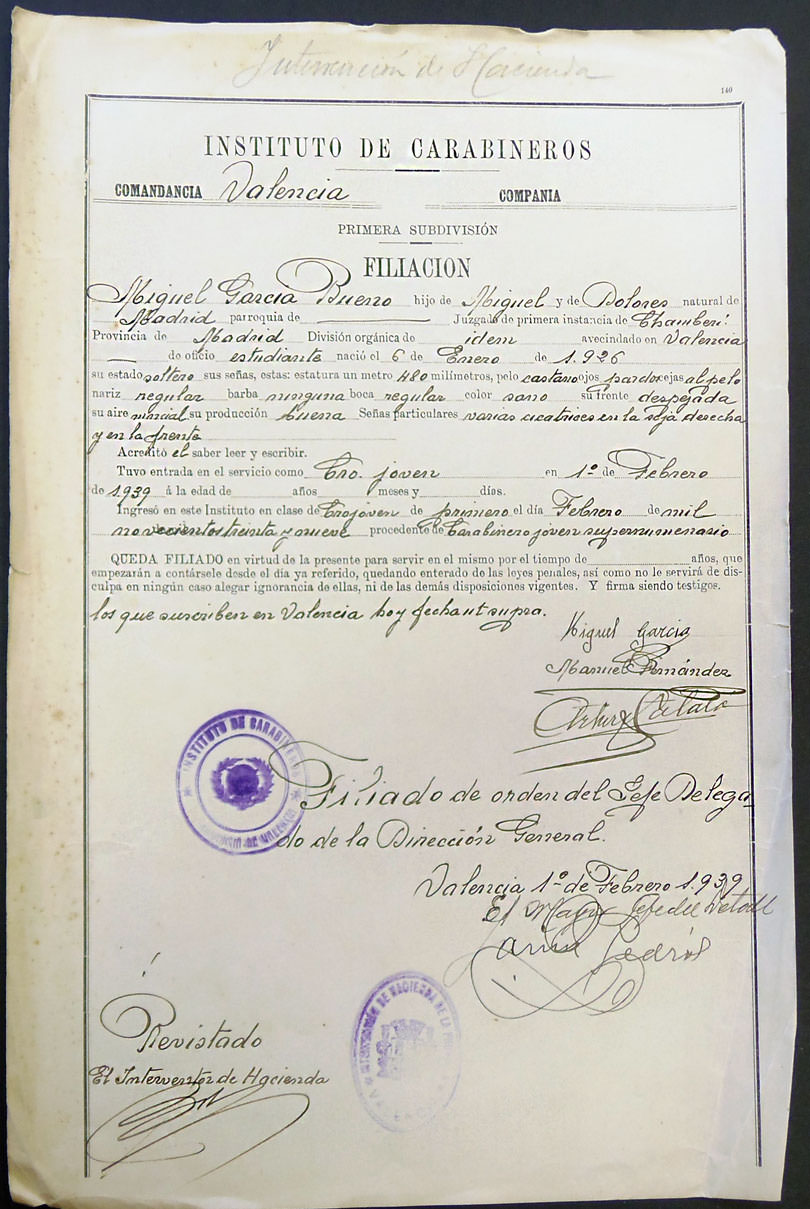 Intervención de Hacienda
140
INSTITUTO DE CARABINEROS
COMANDANCIA Valencia COMPAÑIA
PRIMERA SUBDIVISIÓN
FILIACION
Miguel Garcia Bueno hijo de Miguel y de Dolores natural de
Madrid parroquia de Juzgado de primera instancia de Chamberí
Provincia de Madrid División orgánica de idem avecindado en Valencia
de oficio estudiante nació el 6 de Enero de 1.926
su estado soltero sus señas, estas: estatura un metro 480 milímetros, pelo castaño ojos pardos cejas al pelo
nariz regular barba ninguna boca regular color sano su frente despejada
su aire marcial su producción buena Señas particulares varias cicatrices en la ceja derecha
y en la frente
Acreditó el saber leer y escribir.
Tuvo entrada en el servicio como Cro. joven en 1º de Febrero
de 1.939 á la edad de años meses y días.
Ingresó en este Instituto en clase de Cro joven de primero el día Febrero de mil
novecientos treinta y nueve procedente de Carabinero joven supernumenario
QUEDA FILIADO en virtud de la presente para servir en el mismo por el tiempo de años, que
empezarán a contársele desde el día ya referido, quedando enterado de las leyes penales, así como no le servirá de dis-
culpa en ningún caso alegar ignorancia de ellas, ni de las demás disposiciones vigentes. Y firma siendo testigos.
los que suscriben en Valencia hoy fecha ut supra.
Miguel Garcia
Manuel Fernández
INSTITUTO DE CARABINEROS
Filiado de orden del Jefe Delega-
do de la Dirección General.
Valencia 1º de Febrero 1.939
El Mayor Jefe del Detall
INTERVENCIÓN DE HACIENDA DE LA
VALENCIA
Revistado
El Interventor de Hacienda